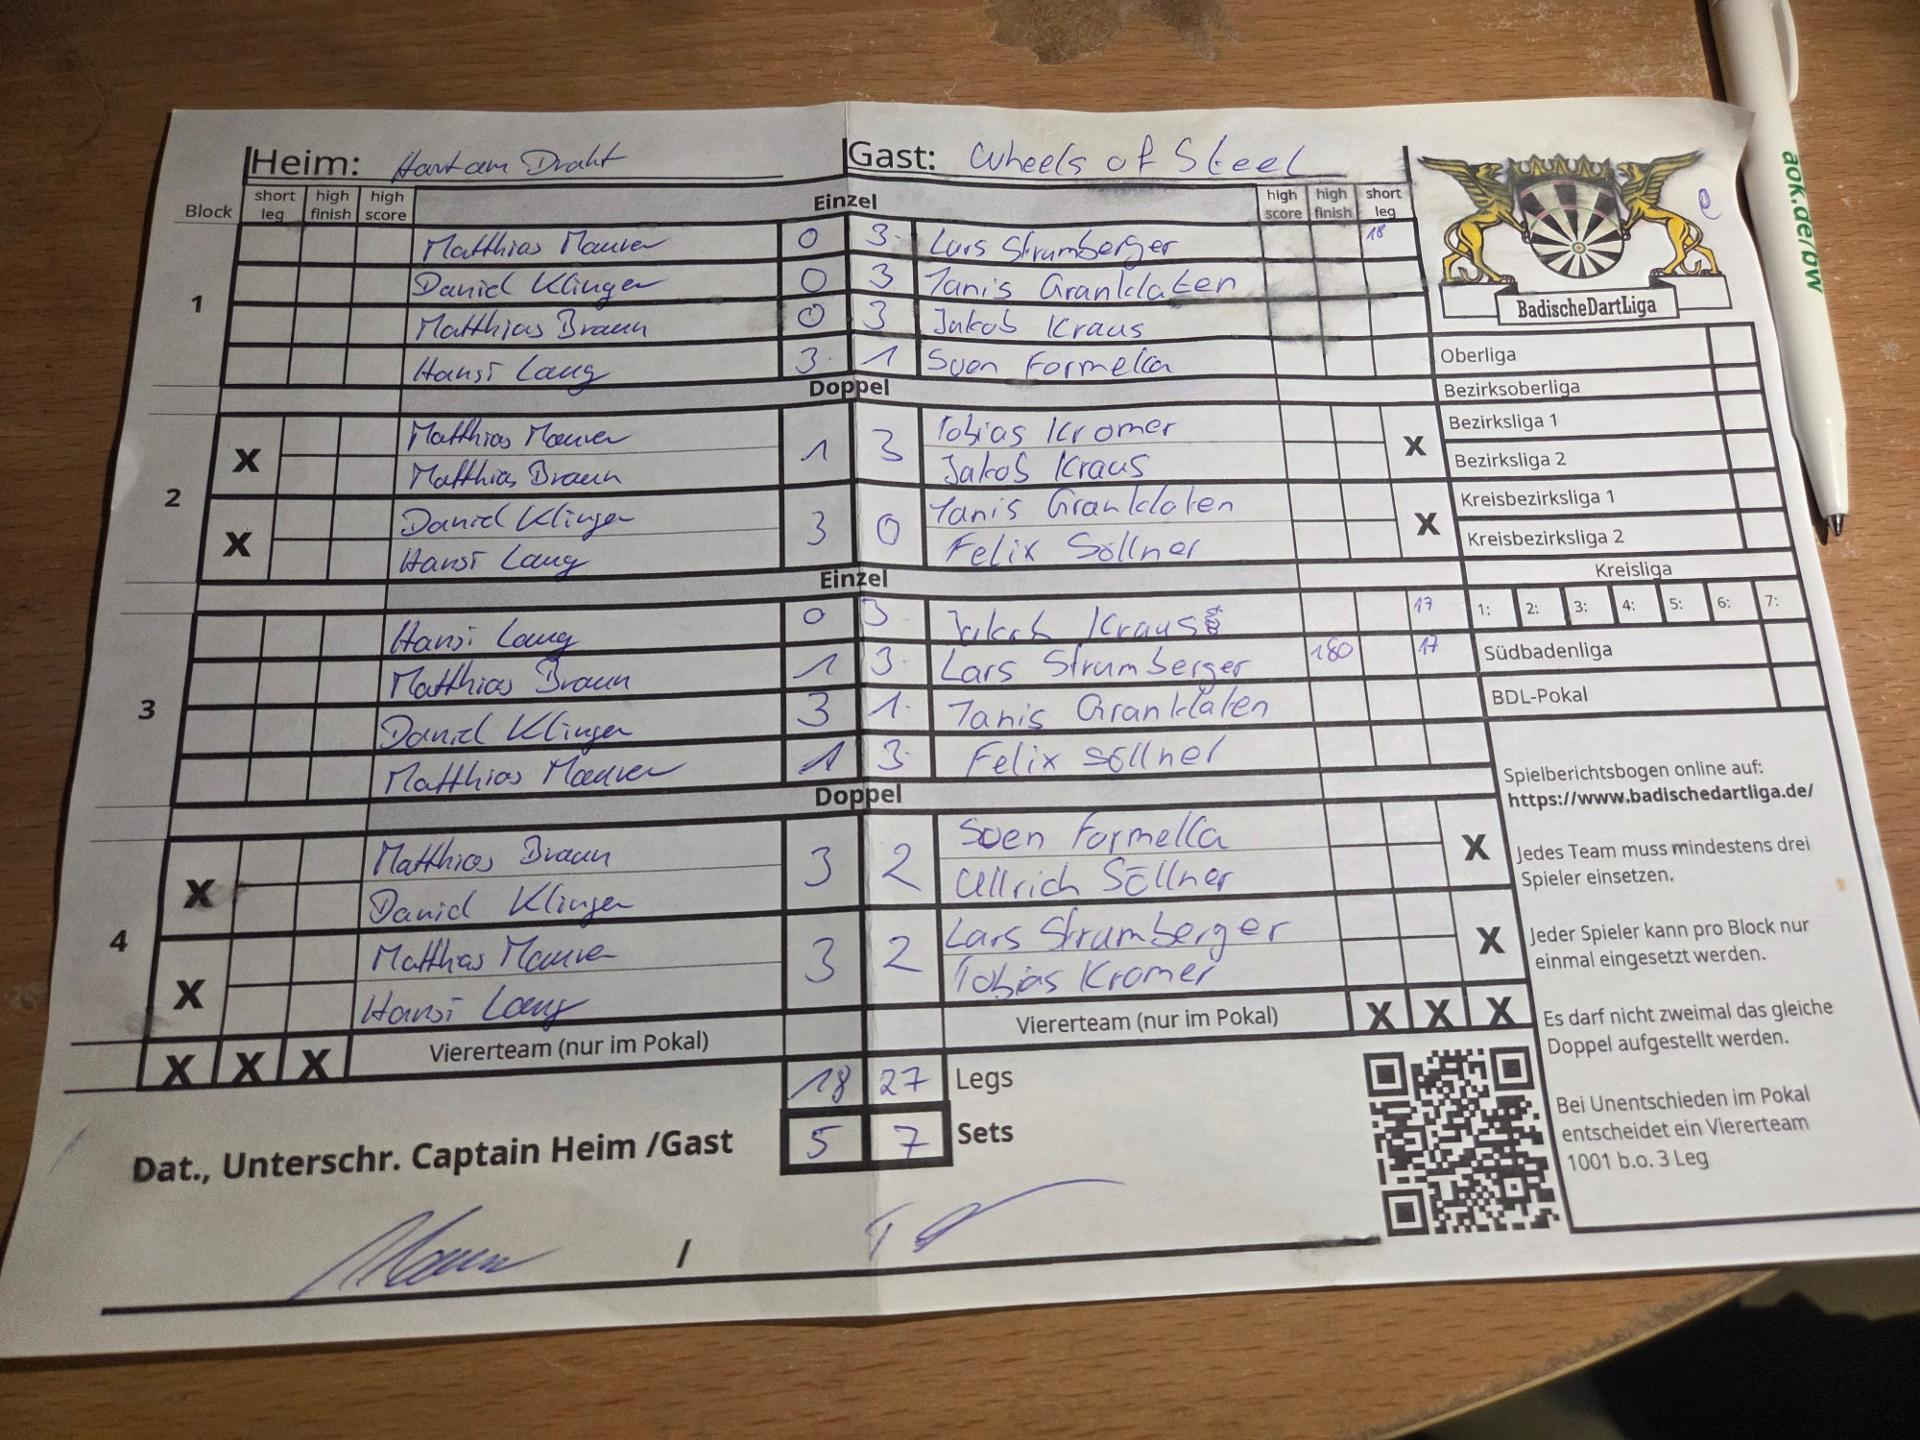 Heim: Hart am Draht Gast: Wheels of Steel
Block short leg high finish high score Einzel high score high finish short leg
1
Matthias Maurer 0 3 Lars Strumberger 18
Daniel Klinger 0 3 Janis Granklaten
Matthias Braun 0 3 Jakob Kraus
Hansi Lang 3 1 Sven Formella
Doppel
2
X Matthias Maurer 1 3 Tobias Kromer X
Matthias Braun Jakob Kraus
X Daniel Klinger 3 0 Janis Granklaten X
Hansi Lang Felix Söllner
Einzel
3
Hansi Lang 0 3 Jakob Kraus 17
Matthias Braun 1 3 Lars Strumberger 180 17
Daniel Klinger 3 1 Janis Granklaten
Matthias Maurer 1 3 Felix Söllner
Doppel
4
X Matthias Braun 3 2 Sven Formella X
Daniel Klinger Ullrich Söllner
X Matthias Maurer 3 2 Lars Strumberger X
Hansi Lang Tobias Kromer
X X X Viererteam (nur im Pokal) Viererteam (nur im Pokal) X X X
18 27 Legs
5 7 Sets
Dat., Unterschr. Captain Heim /Gast
/
BadischeDartLiga
Oberliga
Bezirksoberliga
Bezirksliga 1
Bezirksliga 2
Kreisbezirksliga 1
Kreisbezirksliga 2
Kreisliga
1: 2: 3: 4: 5: 6: 7:
Südbadenliga
BDL-Pokal
Spielberichtsbogen online auf:
https://www.badischedartliga.de/
Jedes Team muss mindestens drei
Spieler einsetzen.
Jeder Spieler kann pro Block nur
einmal eingesetzt werden.
Es darf nicht zweimal das gleiche
Doppel aufgestellt werden.
Bei Unentschieden im Pokal
entscheidet ein Viererteam
1001 b.o. 3 Leg
aok.de/bw